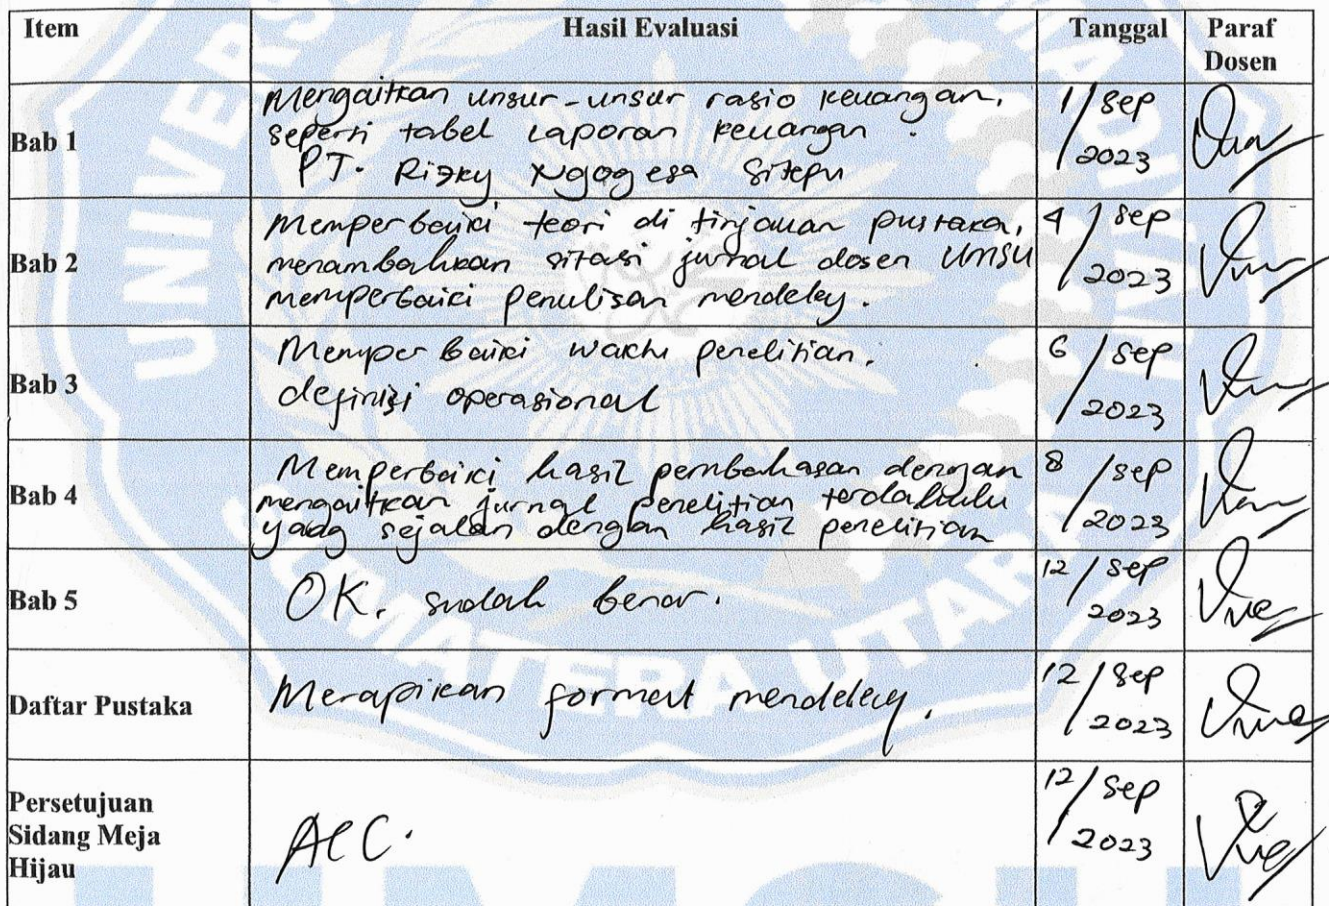 Item Hasil Evaluasi Tanggal Paraf Dosen
Bab 1
Mengaitkan unsur-unsur rasio keuangan,
seperti tabel laporan keuangan.
PT. Rizky Ngogesa Sitepu
1/Sep
2023
Bab 2
Memperbaiki teori di tinjauan pustaka,
menambahkan sitasi jurnal dosen UMSU
memperbaiki penulisan mendeley.
4/Sep
2023
Bab 3
Memperbaiki waktu penelitian.
definisi operasional
6/Sep
2023
Bab 4
Memperbaiki hasil pembahasan dengan
mengaitkan jurnal penelitian terdahulu
yang sejalan dengan hasil penelitian
8/Sep
2023
Bab 5
OK, sudah benar.
12/Sep
2023
Daftar Pustaka
Merapikan format mendeley.
12/Sep
2023
Persetujuan
Sidang Meja
Hijau
ACC.
12/Sep
2023